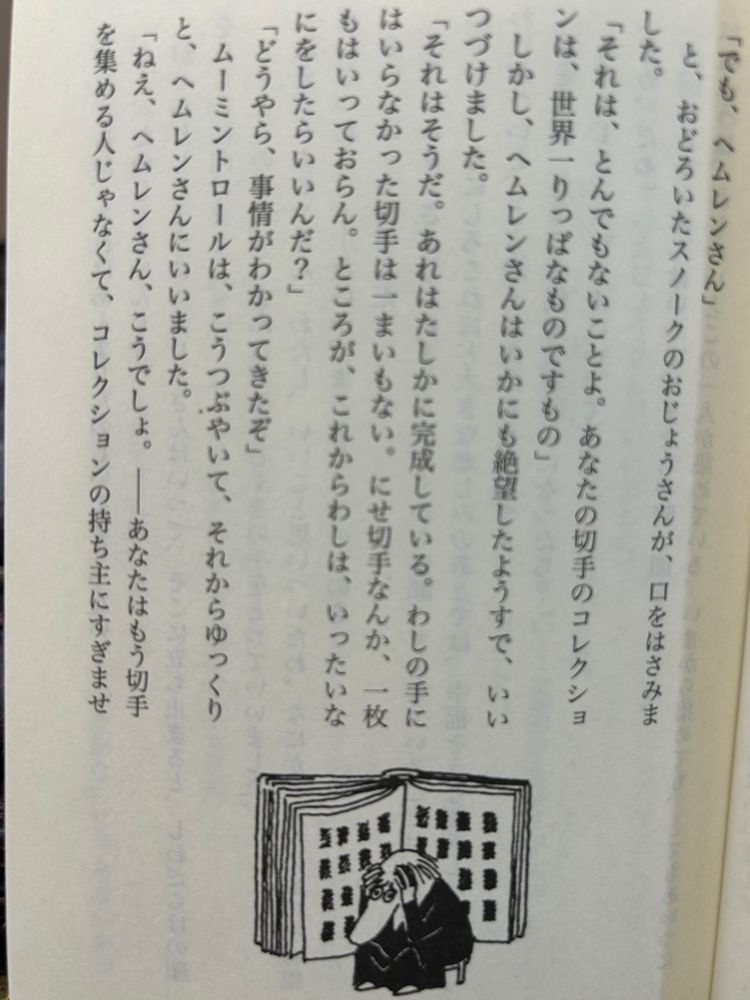 「でも、ヘムレンさん」
と、おどろいたスノークのおじょうさんが、口をはさみま
した。
「それは、とんでもないことよ。あなたの切手のコレクショ
ンは、世界一りっぱなものですもの」
しかし、ヘムレンさんはいかにも絶望したようすで、いい
つづけました。
「それはそうだ。あれはたしかに完成している。わしの手に
はいらなかった切手は一まいもない。にせ切手なんか、一枚
もはいっておらん。ところが、これからわしは、いったいな
にをしたらいいんだ？」
「どうやら、事情がわかってきたぞ」
ムーミントロールは、こうつぶやいて、それからゆっくり
と、ヘムレンさんにいいました。
「ねえ、ヘムレンさん、こうでしょ。――あなたはもう切手
を集める人じゃなくて、コレクションの持ち主にすぎませ